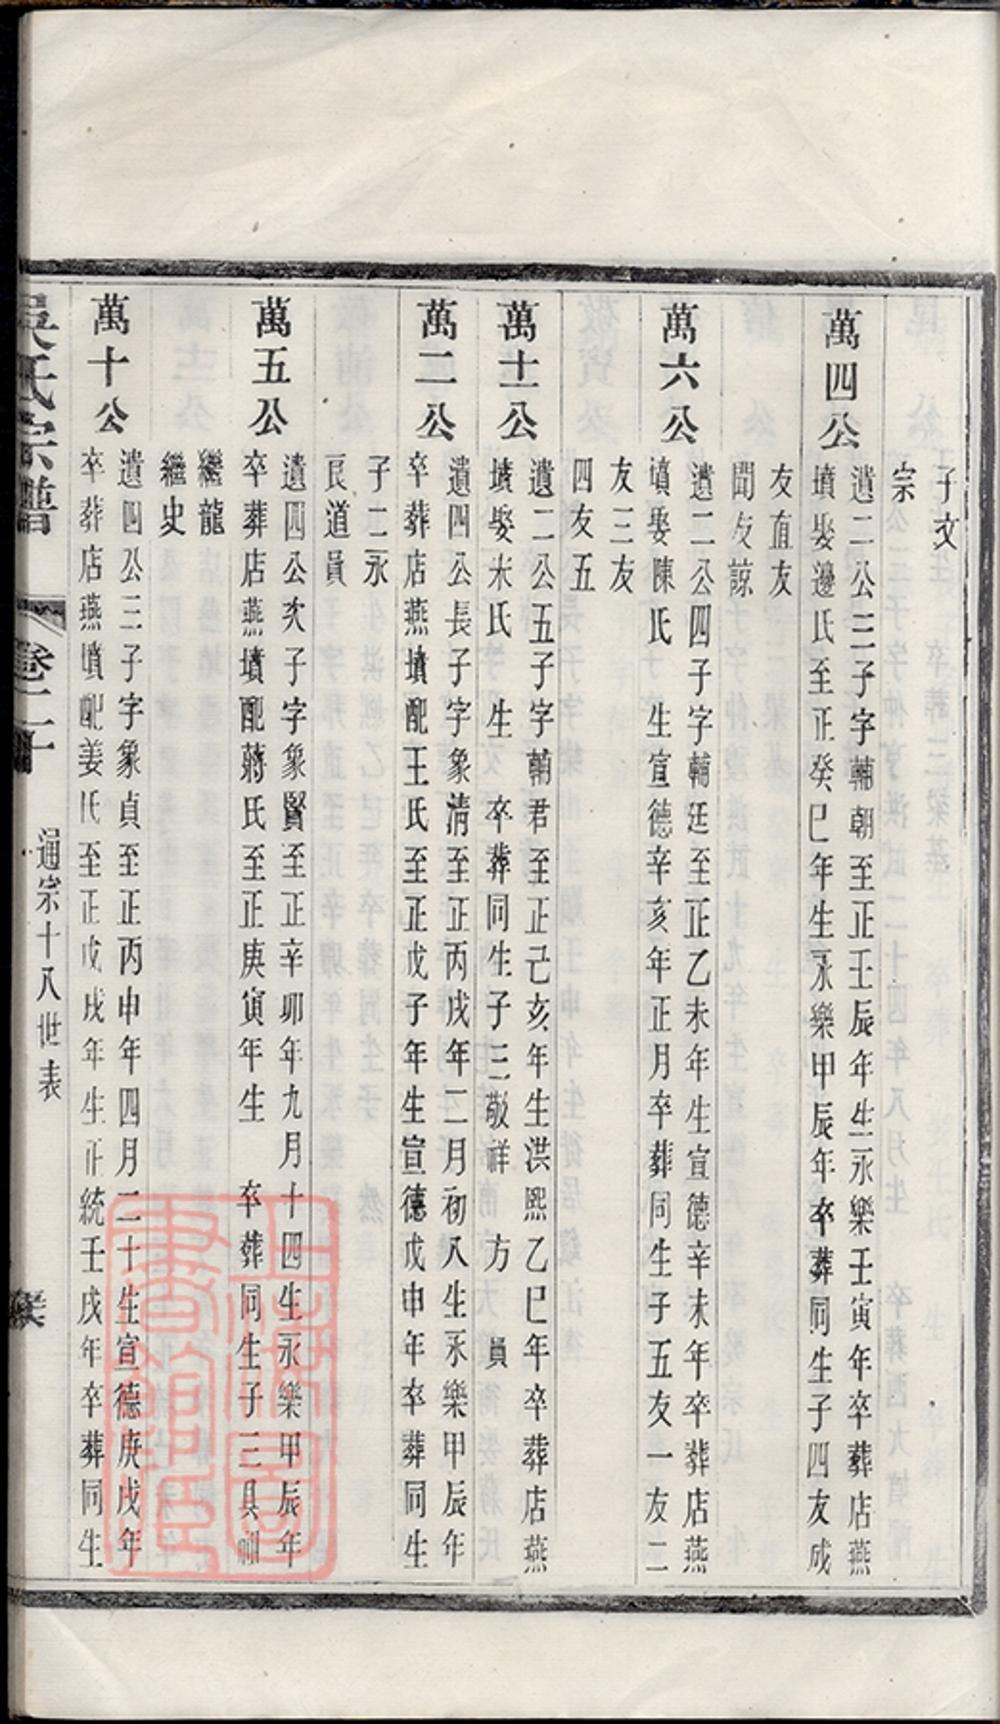 子文
宗
萬四公
遺二公三子字輔朝至正壬辰年生永樂壬寅年卒葬店燕
墳娶邊氏至正癸巳年生永樂甲辰年卒葬同生子四友成
友直友
聞友諒
萬六公
遺二公四子字輔廷至正乙未年生宣德辛未年卒葬店燕
墳娶陳氏 生宣德辛亥年正月卒葬同生子五友一友二
友三友
四友五
萬十一公
遺二公五子字輔君至正己亥年生洪熙乙巳年卒葬店燕
墳娶米氏 生 卒葬同生子三敬祥 方 員
萬二公
遺四公長子字象清至正丙戌年二月初八生永樂甲辰年
卒葬店燕墳配王氏至正戊子年生宣德戊申年卒葬同生
子二永
良道員
萬五公
遺四公次子字象賢至正辛卯年九月十四生永樂甲辰年
卒葬店燕墳配蔣氏至正庚寅年生 卒葬同生子三具訓
繼龍
繼史
萬十公
遺四公三子字象貞至正丙申年四月二十生宣德庚戌年
卒葬店燕墳配姜氏至正戊戌年生正統壬戌年卒葬同生
吳氏宗譜 卷二十 通宗十八世表